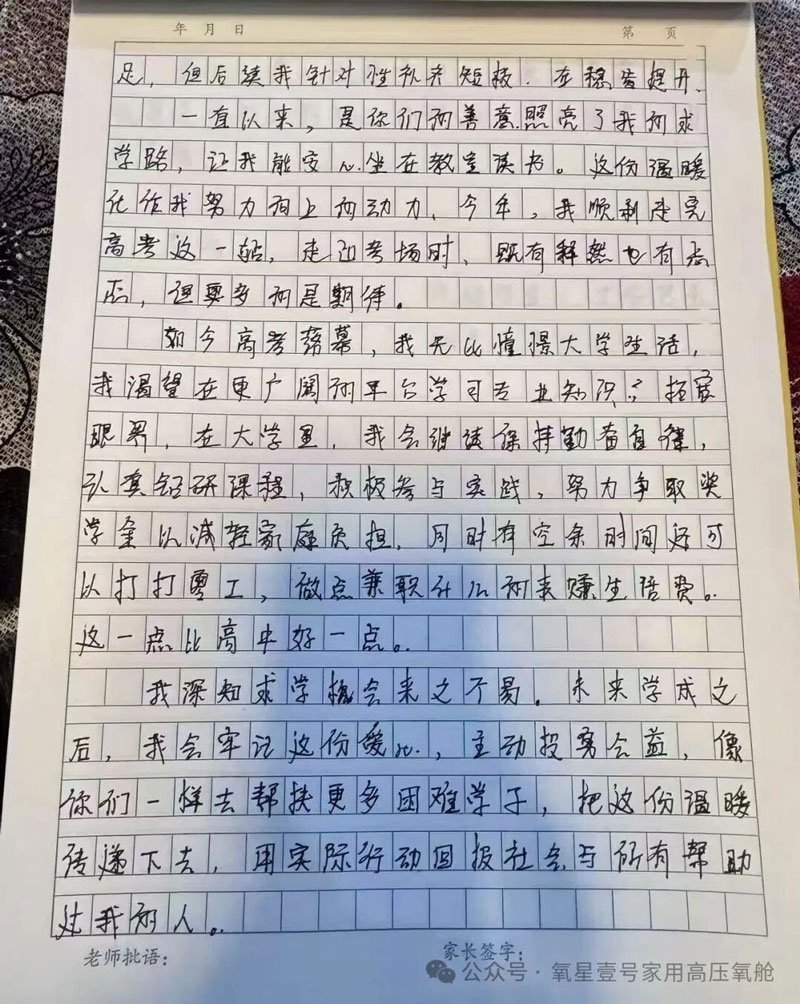 年 月 日 第 页
足，但后续我针对性补齐短板．在稳省提升．
一直以来，是你们的善意照亮了我的求
学路，让我能安心坐在教室读书。这份温暖
化作我努力向上的动力、今年，我顺利走完
高考这一站，走出考场时、既有释然也有忐
忑，但更多的是期待。
如今高考落幕，我无比憧憬大学生活，
我渴望在更广阔的平台学习专业知识，拓展
眼界，在大学里，我会继续保持勤奋自律，
认真钻研课程，积极参与实践，努力争取奖
学金以减轻家庭负担，同时有空余时间还可
以打打零工，做点兼职什么的来赚生活费。
这一点比高中好一点。
我深知求学机会来之不易。未来学成之
后，我会牢记这份爱心，主动投身公益，像
你们一样去帮扶更多困难学子，把这份温暖
传递下去，用实际行动回报社会与所有帮助
过我的人。
老师批语： 家长签字：
公众号·氧星壹号家用高压氧舱